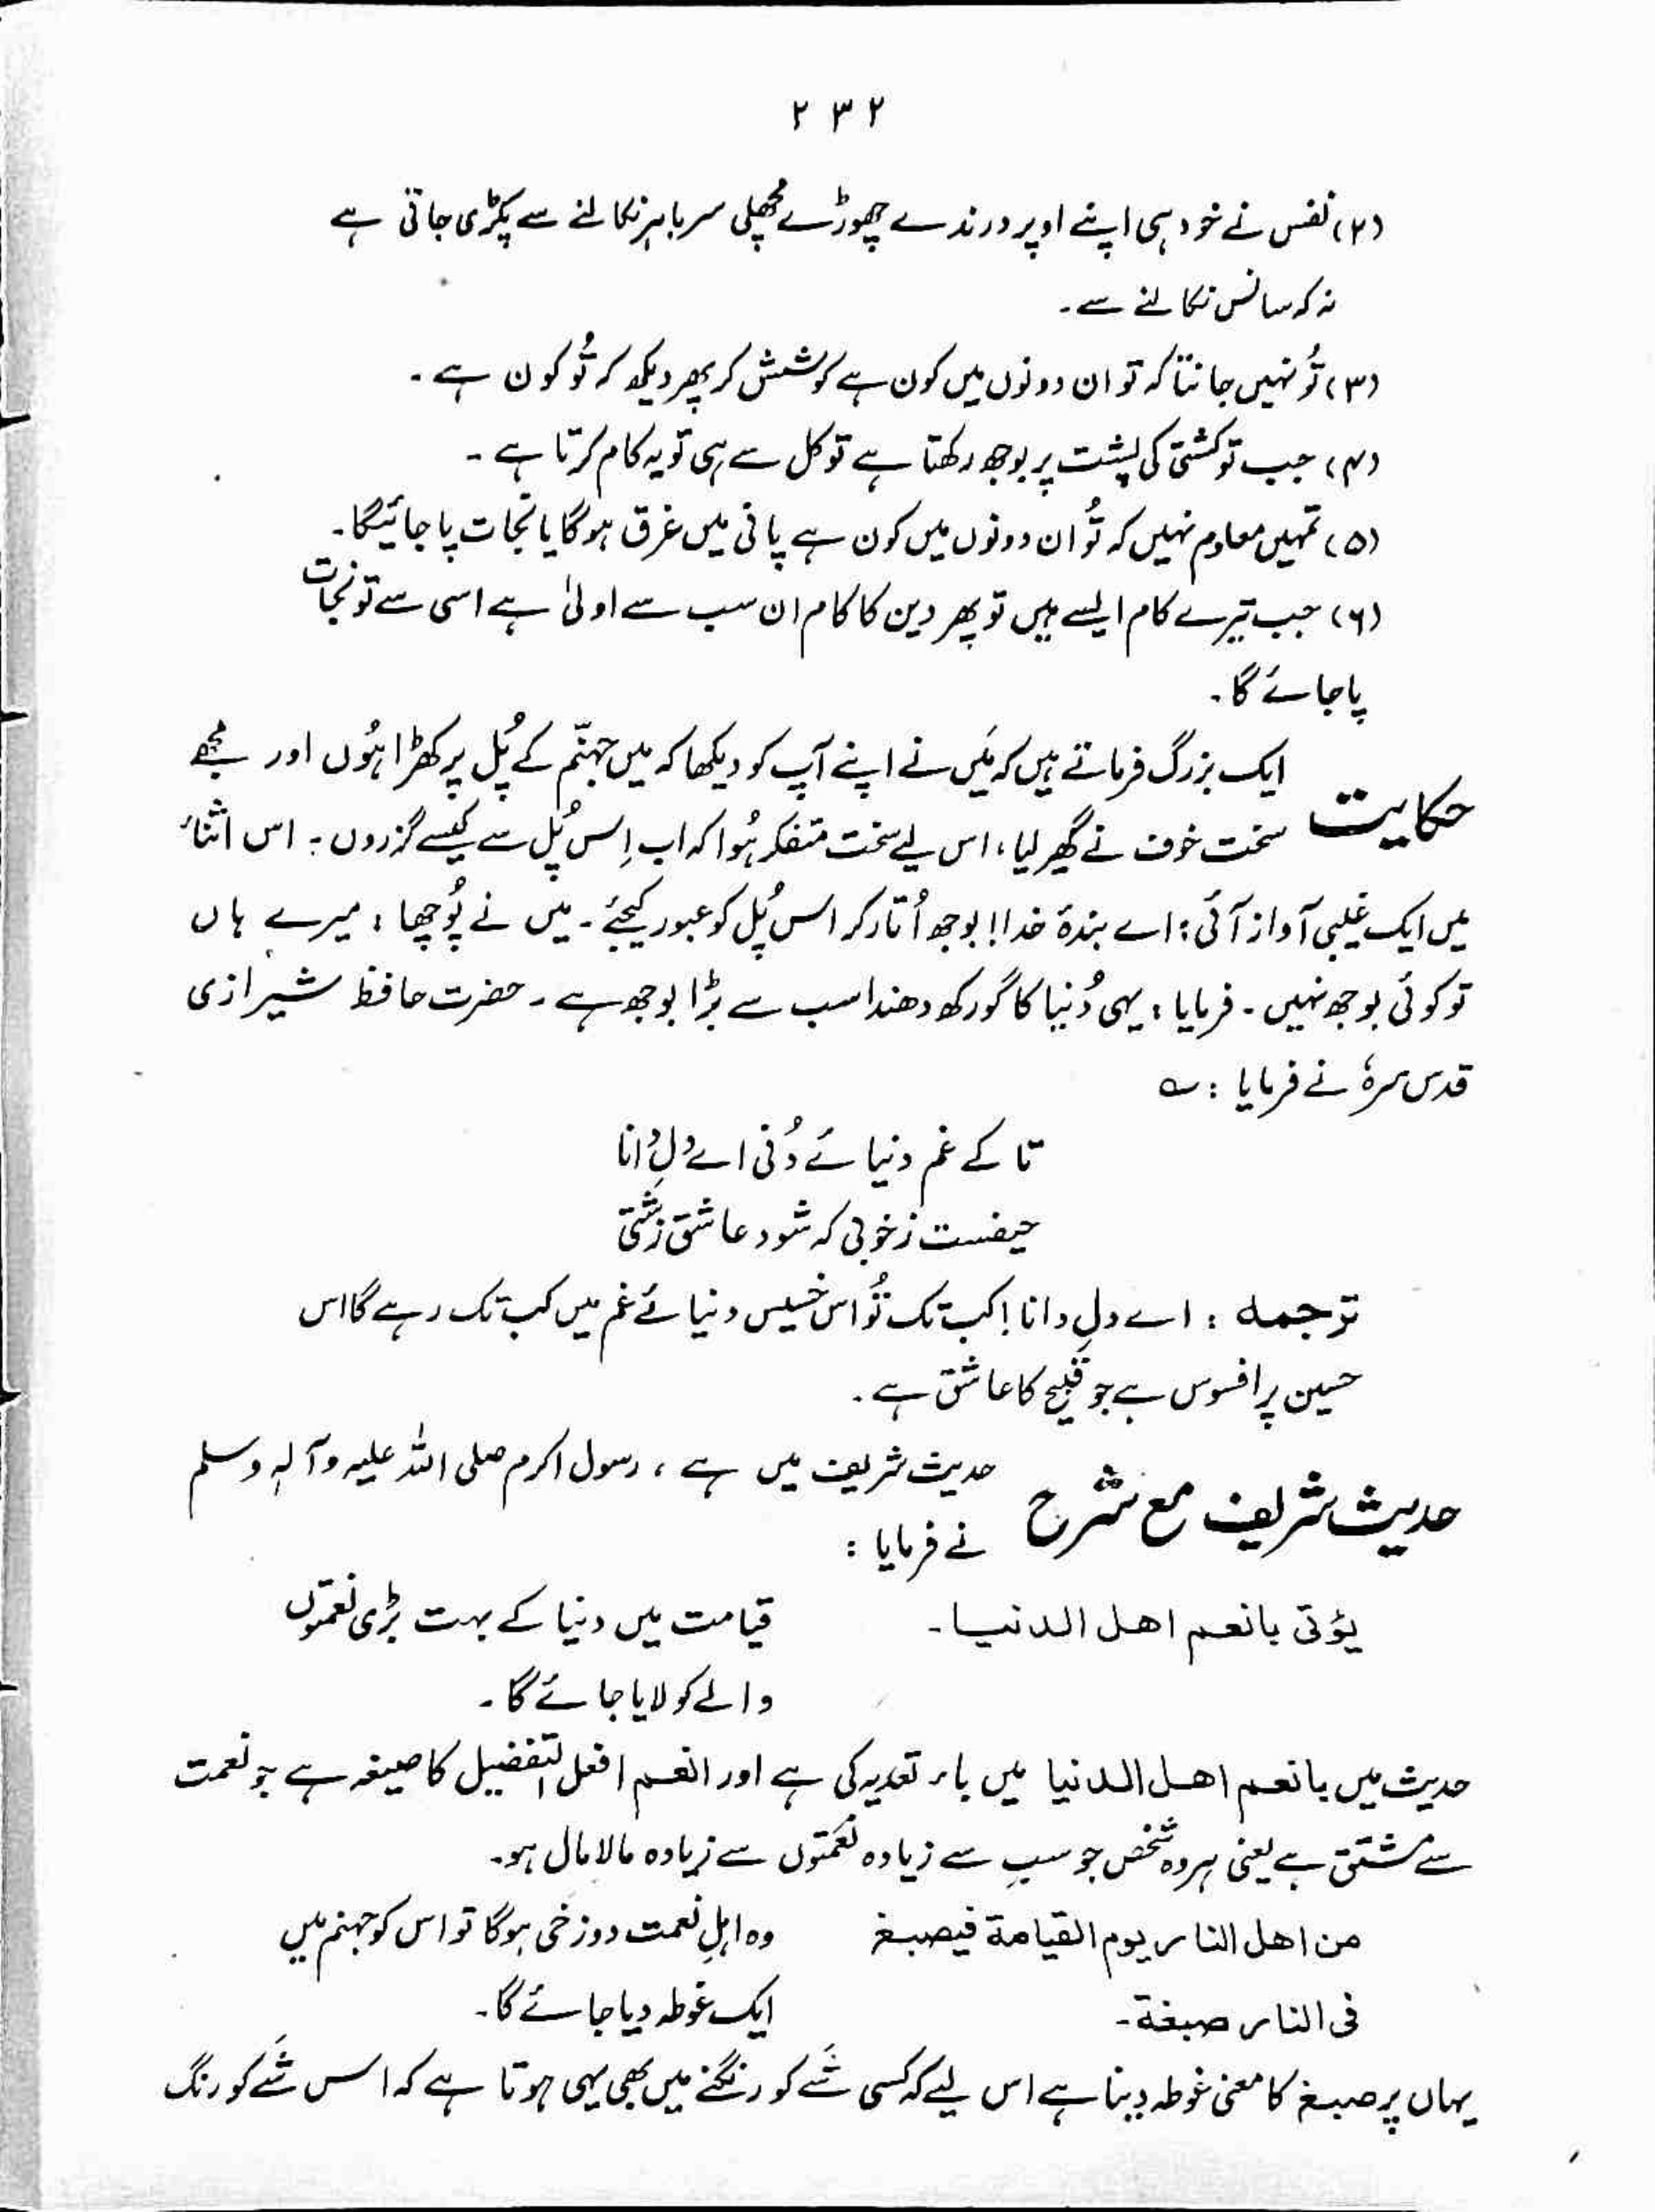 ۲۳۲
(۲) نفس نے خود ہی اپنے اوپر درندے چھوڑے مچھلی سر باہر نکالنے سے پکڑی جاتی ہے
نہ کہ سانس نکالنے سے۔
(۳) تُو نہیں جانتا کہ تو ان دونوں میں کون ہے کوشش کر پھر دیکھ کہ تُو کون ہے۔
(۴) جب تو کشتی کی پشت پر بوجھ رکھتا ہے توکل سے ہی تو یہ کام کرتا ہے۔
(۵) تمہیں معلوم نہیں کہ تُو ان دونوں میں کون ہے پانی میں غرق ہوگا یا نجات پا جائیگا۔
(۶) جب تیرے کام ایسے ہیں تو پھر دین کا کام ان سب سے اولیٰ ہے اسی سے تو نجات
پا جائے گا۔
حکایت ایک بزرگ فرماتے ہیں کہ مَیں نے اپنے آپ کو دیکھا کہ میں جہنّم کے پُل پر کھڑا ہُوں اور مجھے
سخت خوف نے گھیر لیا، اس لیے سخت متفکر ہُوا کہ اب اِس پُل سے کیسے گزروں۔ اس اثناء
میں ایک غیبی آواز آئی: اے بندۂ خدا! بوجھ اُتار کر اس پُل کو عبور کیجئے۔ میں نے پُوچھا: میرے ہاں
تو کوئی بوجھ نہیں۔ فرمایا: یہی دُنیا کا گورکھ دھندا سب سے بڑا بوجھ ہے۔ حضرت حافظ شیرازی
قدس سرہٗ نے فرمایا: ؎
تا کے غم دنیائے دُنی اے دلِ دانا
حیفست ز خوبی کہ شود عاشق زشتی
ترجمہ: اے دلِ دانا! کب تک تُو اس خسیس دنیائے غم میں کب تک رہے گا اس
حسین پر افسوس ہے جو قبیح کا عاشق ہے۔
حدیث شریف مع شرح حدیث شریف میں ہے، رسول اکرم صلی اللہ علیہ وآلہٖ وسلم
نے فرمایا:
یؤتی بانعم اھل الدنیا۔ قیامت میں دنیا کے بہت بڑی نعمتوں
والے کو لایا جائے گا۔
حدیث میں بانعم اھل الدنیا میں باء تعدیہ کی ہے اور انعم افعل التفضیل کا صیغہ ہے جو نعمت
سے مشتق ہے یعنی ہر وہ شخص جو سب سے زیادہ نعمتوں سے زیادہ مالا مال ہو۔
من اھل النار یوم القیامۃ فیصبغ وہ اہلِ نعمت دوزخی ہوگا تو اس کو جہنم میں
فی النار صبغۃ۔ ایک غوطہ دیا جائے گا۔
یہاں پر صبغ کا معنی غوطہ دینا ہے اس لیے کہ کسی شَے کو رنگنے میں بھی یہی ہوتا ہے کہ اس شَے کو رنگ